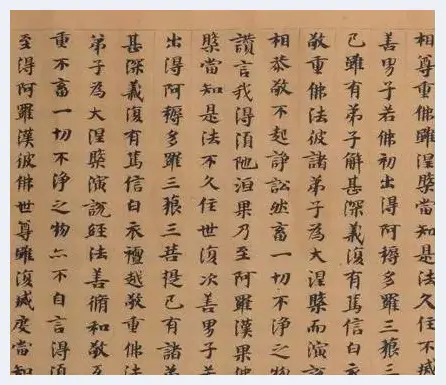 相尊重佛雖涅槃當知是法久住不滅
善男子若佛初出得阿耨多羅三藐三
已雖有弟子解甚深義復有篤信白衣
敬重佛法彼諸弟子為大涅槃而演
相恭敬不起諍訟然畜一切不淨之物
讚言我得須陀洹果乃至阿羅漢果佛
槃當知是法不久住世復次善男子若
出得阿耨多羅三藐三菩提已有諸弟
甚深義復有篤信白衣檀越敬重佛法
弟子為大涅槃演說經法善脩和敬
重不畜一切不淨之物亦不自言得須
至得阿羅漢彼佛世尊雖復滅度當知